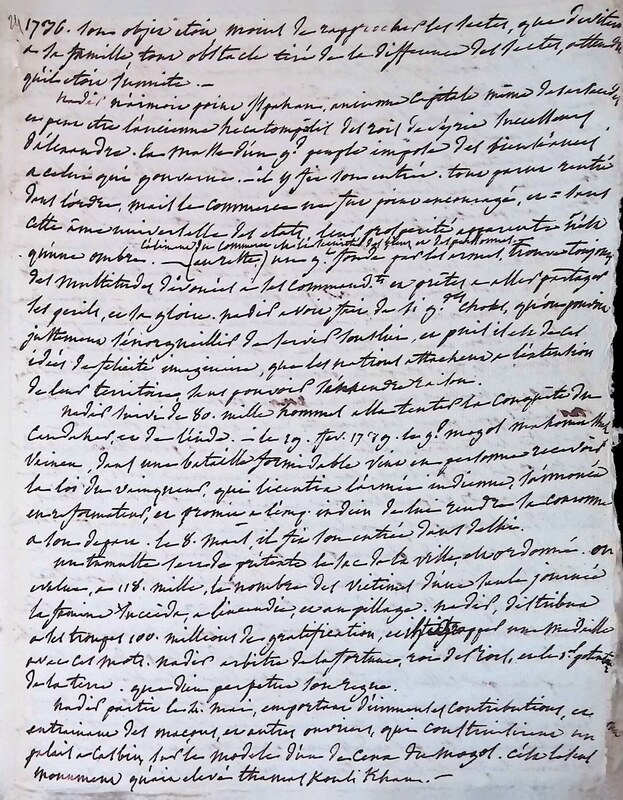 1736. son objet étoit moins de rapprocher les sectes, que d'éviter
a sa famille tout obstacle tiré de la difference des sectes, attendu
qu'il étoit sunnite. —
nadir n'aimoit point ispahan, ancienne capitale même des
et peut etre l'ancienne hecatompilis des rois de syrie successeurs
d'alexandre. la masse d'un gd peuple impose des bienséances
a celui qui gouverne. — il y fit son entrée. tout parut rentré
dans l'ordre, mais le commerce ne fut point encouragé, et = sans
cette âme universelle des etats, leur prosperité apparente n'est
qu'une ombre. — (en effet) un gd fondé par les armes, trouve toujours
des multitudes dévouées a ses commandts et prêtes a aller partager
les perils, et la gloire. nadir avoit fait de si gdes choses, qu'on pouvoit
justement s'énorgueillir de servir sous lui, et puis il est de ces
idées de felicité imaginaire, que les nations attachent a l'extention
de leur territoire, sans pouvoir s'en rendre raison.
nadir suivi de 80. mille hommes alla tenter la conquête du
Candahar, et de l'inde. — le 19. fev. 1739. le gd mogol mahommed
vaincu, dans une bataille formidable vint en personne recevoir
la loi du vainqueur, qui licentia l'armée indienne,
en reformateur, et promit a l'emp. indien de lui rendre la couronne
a son depart. le 8. mars, il fit son entrée dans delhi.
un tumulte sert de prétexte le sac de la ville, est ordonné. on
evalue, a 118. mille, le nombre des victimes d'une seule journée
la famine succéda, a l'incendie, et au pillage. nadir, distribua
a ses troupes 100. millions de gratification, et frappa une medaille
avec ces mots. nadir arbitre de la fortune, roi des rois, est le pl. potentat
de la terre. que dieu perpetue son regne.
nadir partit le mai, emportant d'immenses contributions, et
entrainant des maçons, et autres ouvriers, qui construisirent un
palais a Casbin, sur le modele d'un de ceux du mogol. c'est le seul
monument qu'ait elevé thamas Kouli Khan. —